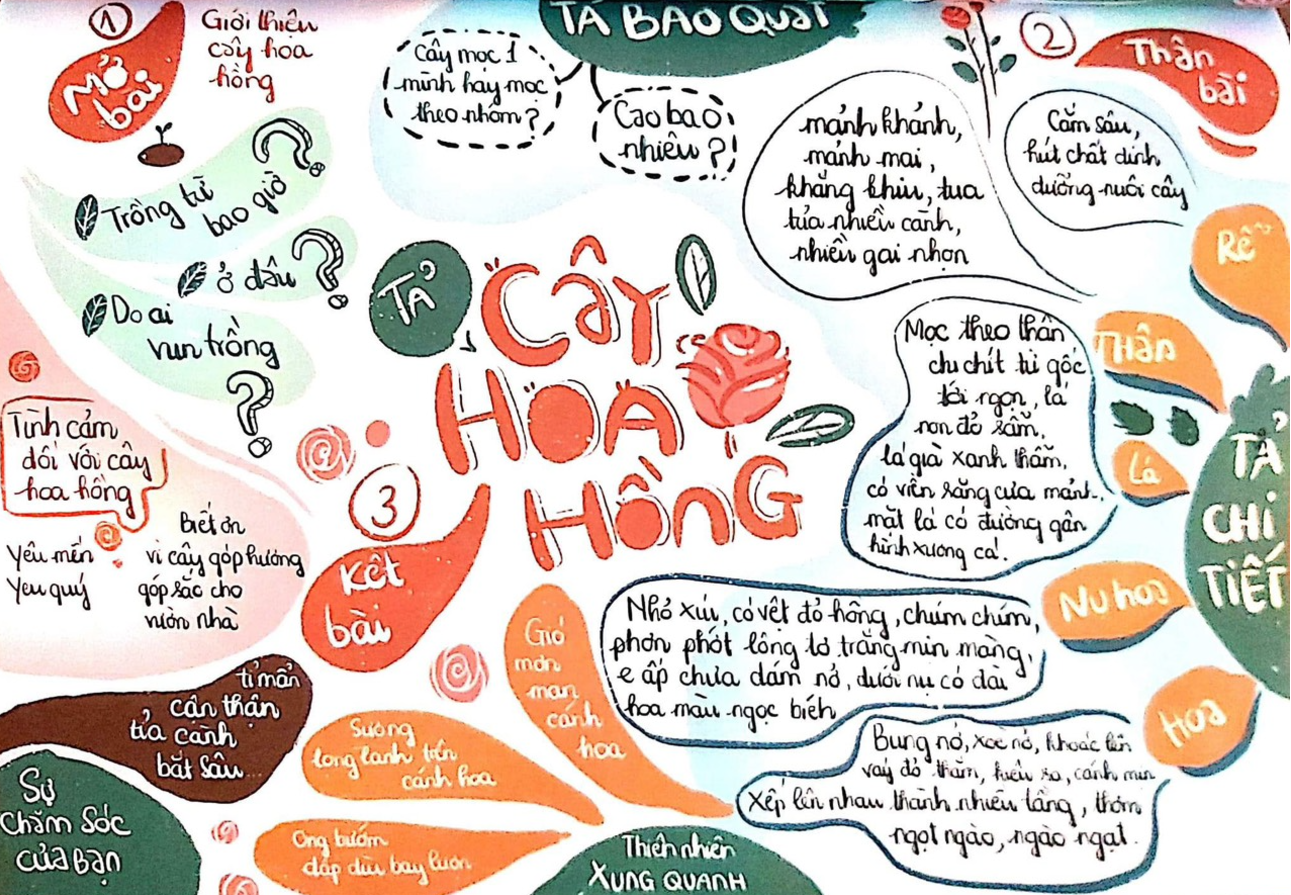 1
Mở
bài
Giới thiệu
cây hoa
hồng
Trồng từ
bao giờ
?
ở đâu
?
Do ai
vun trồng
?
TẢ BAO QUÁT
Cây mọc 1
mình hay mọc
theo nhóm?
Cao bao
nhiêu?
2
Thân
bài
mảnh khảnh,
mảnh mai,
khẳng khiu, tua
tủa nhiều cành,
nhiều gai nhọn
Cắm sâu,
hút chất dinh
dưỡng nuôi cây
Rễ
THÂN
Mọc theo thân
chi chít từ gốc
tới ngọn, lá
non đỏ sẫm,
lá già xanh thẫm,
có viền răng cưa mảnh,
mặt lá có đường gân
hình xương cá.
Lá
TẢ
CHI
TIẾT
TẢ
CÂY
HOA
HỒNG
Nụ hoa
Nhỏ xíu, có vệt đỏ hồng, chúm chím,
phơn phớt lông tơ trắng mịn màng,
e ấp chưa dám nở, dưới nụ có đài
hoa màu ngọc bích
Hoa
Bung nở, xoè nở, khoác lên
váy đỏ thắm, kiêu sa, cánh mịn
xếp lên nhau thành nhiều tầng, thơm
ngọt ngào, ngào ngạt.
3
Kết
bài
Tình cảm
đối với cây
hoa hồng
Yêu mến
Yêu quý
Biết ơn
vì cây góp hương
góp sắc cho
vườn nhà
tỉ mẩn
cẩn thận
tỉa cành
bắt sâu...
Sự
Chăm Sóc
CủA BạN
Gió
mơn
man
cánh
hoa
Sương
long lanh trên
cánh hoa
Ong bướm
dập dìu bay lượn
Thiên nhiên
XUNG QUANH